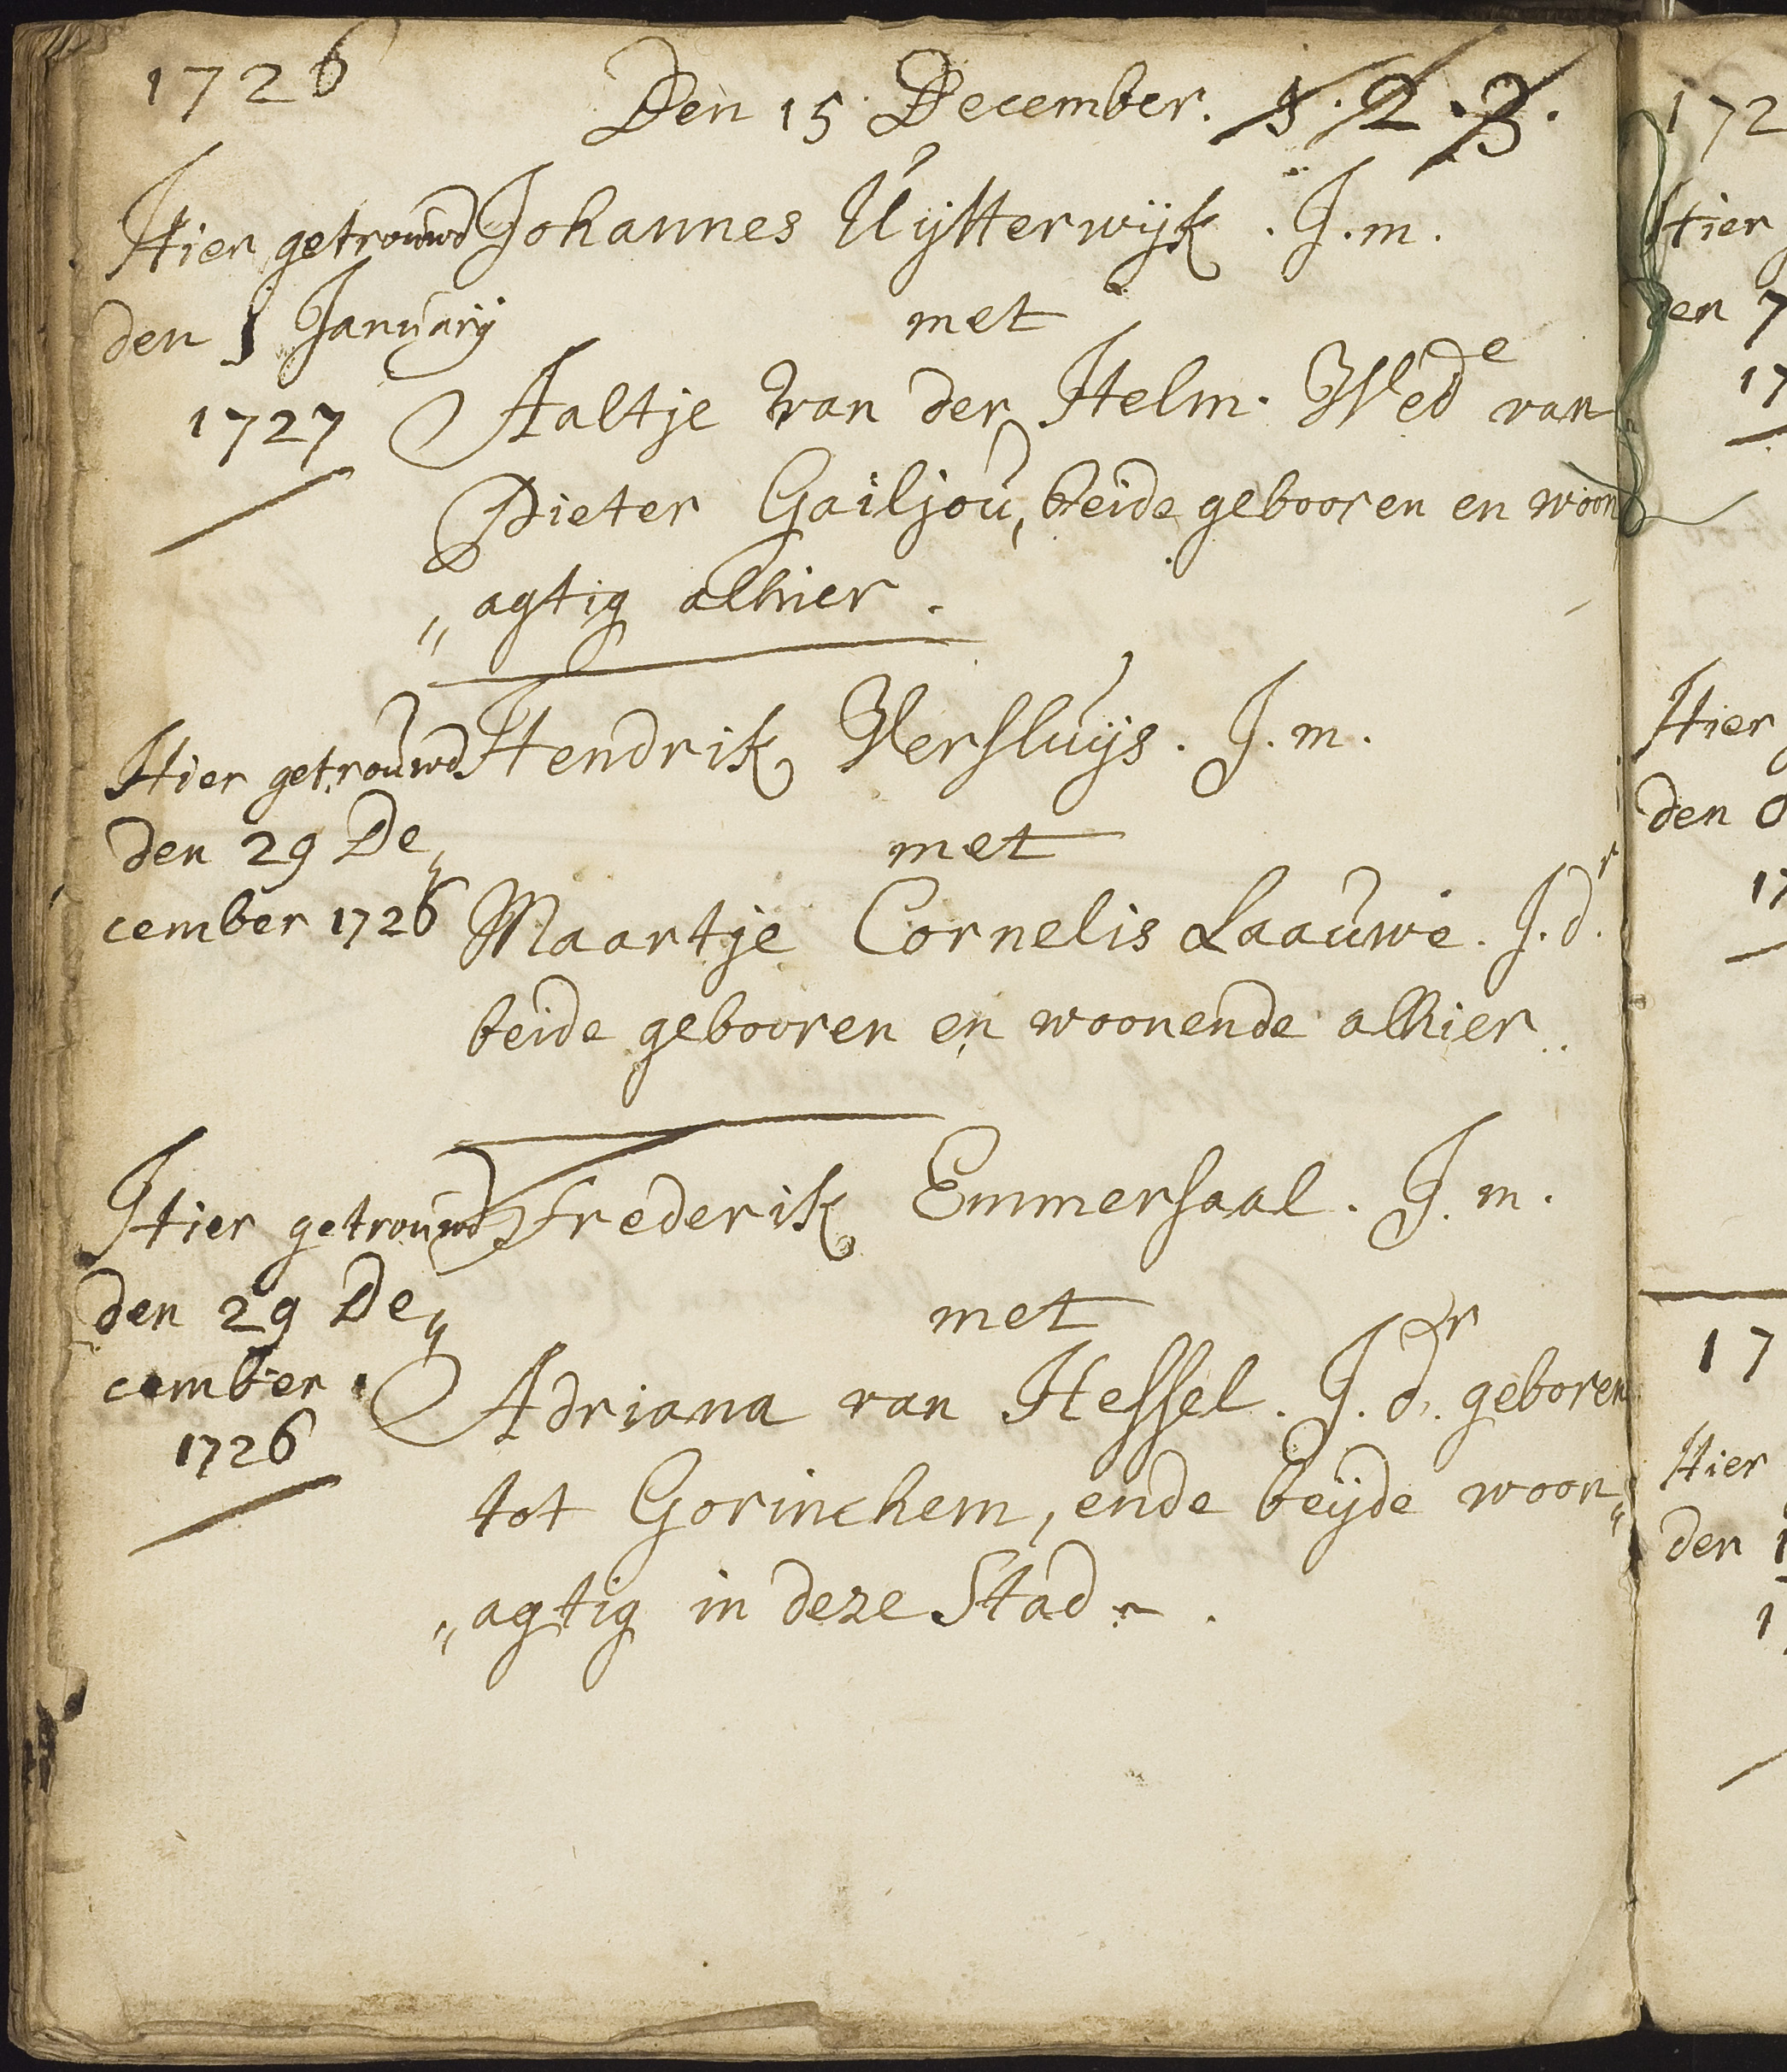 1726
Den 15 December. 1. 2. 3.
Hier getrouwd
den 1 January
1727
Johannes Uytterwyk. J.m.
met
Aaltje van der Helm. Wede van
Pieter Gailjou, beide gebooren en woon
„agtig alhier.
Hier getrouwd
den 29 De„
cember 1726
Hendrik Versluijs. J.m.
met
Maartje Cornelis Laauwe. J.dr.
beide gebooren en woonende alhier..
Hier getrouwd
den 29 De„
cember.
1726
Frederik Emmersaal. J.m.
met
Adriana van Hessel. J.dr. geboren
tot Gorinchem, ende beyde woon„
„agtig in deze Stad.
172
Hier
den 7
17
Hier
den
17
17
Hier
den 1
1